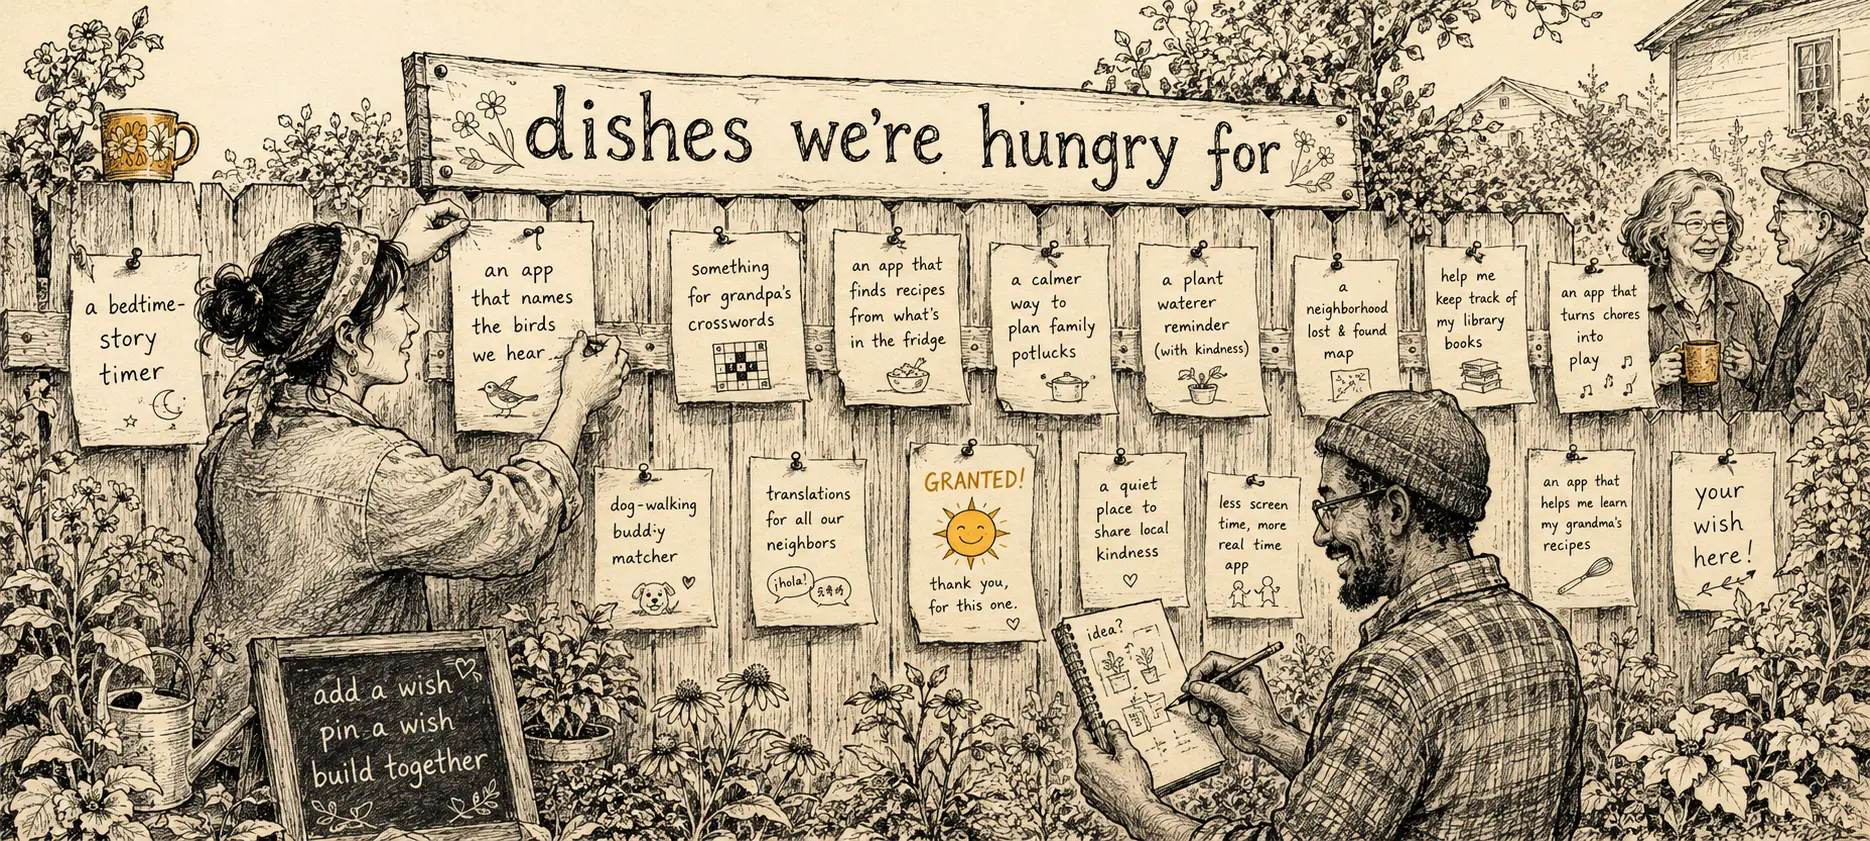 dishes we're hungry for
a bedtime-
story
timer
an app
that names
the birds
we hear
something
for grandpa's
crosswords
an app that
finds recipes
from what's
in the fridge
a calmer
way to
plan family
potlucks
a plant
waterer
reminder
(with kindness)
a
neighborhood
lost & found
map
help me
keep track of
my library
books
an app that
turns chores
into
play
dog-walking
budd:y
matcher
translations
for all our
neighbors
¡hola!
GRANTED!
thank you,
for this one.
a quiet
place to
share local
kindness
less screen
time, more
real time
app
an app that
helps me learn
my grandma's
recipes
your
wish
here!
idea?
add a wish
pin a wish
build together